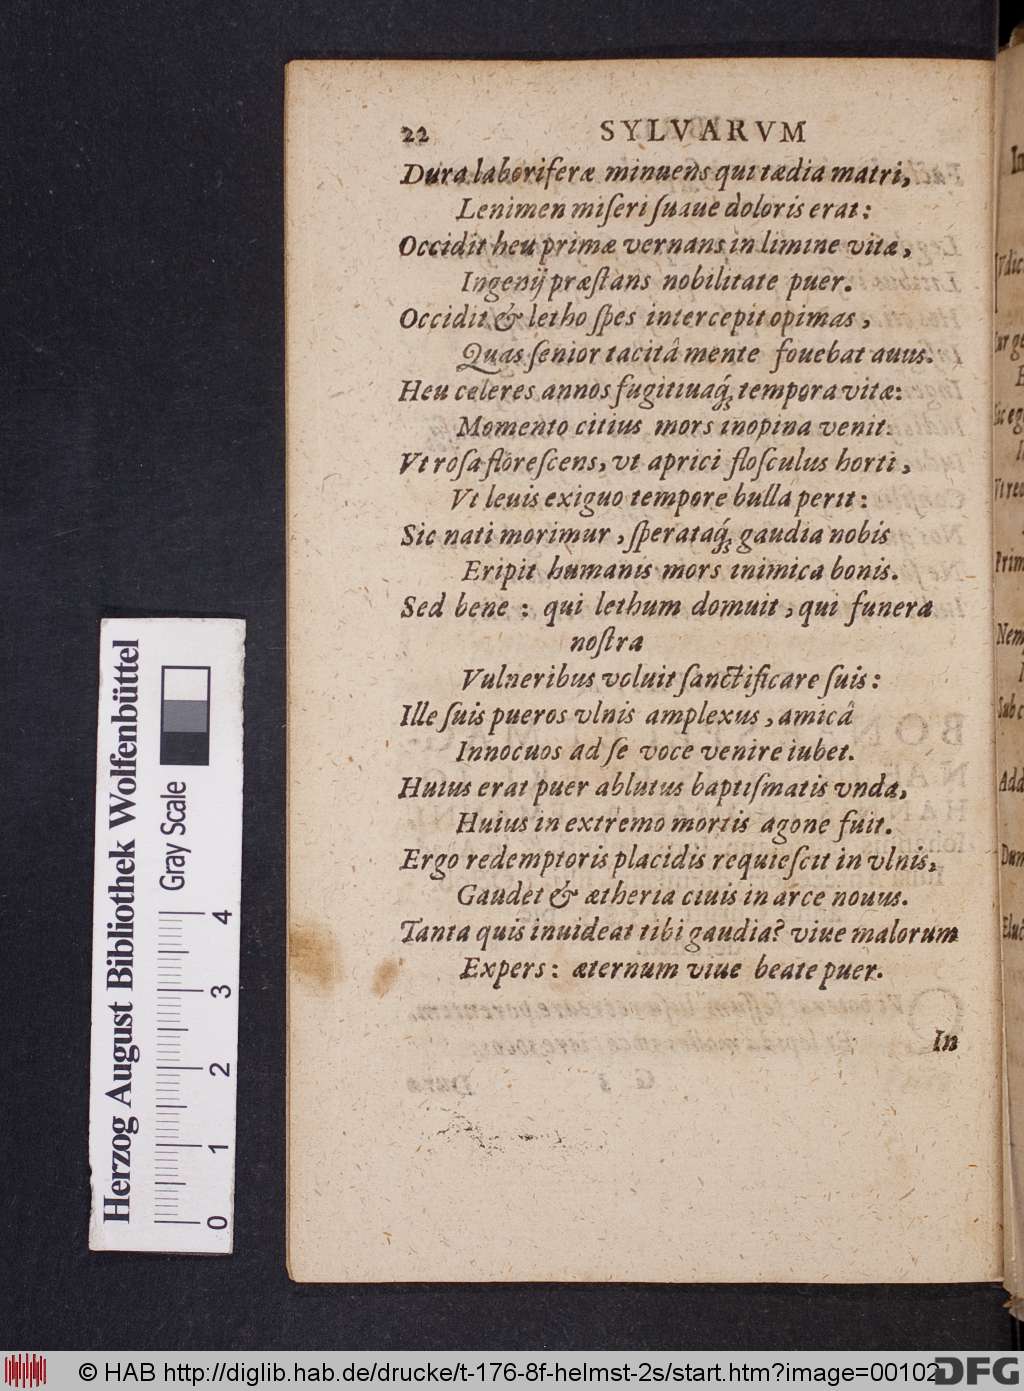 22 SYLVARVM
Dura laboriferæ minuens qui tædia matri,
Lenimen miſeri ſuaue doloris erat:
Occidit heu primæ vernans in limine vitæ,
Ingenij præſtans nobilitate puer.
Occidit & letho ſpes intercepit opimas,
Quas ſenior tacitâ mente fouebat auus.
Heu celeres annos fugitiuaq́; tempora vitæ:
Momento citius mors inopina venit.
Vt roſa floreſcens, vt aprici floſculus horti,
Vt leuis exiguo tempore bulla perit:
Sic nati morimur, ſperataq́; gaudia nobis
Eripit humanis mors inimica bonis.
Sed bene: qui lethum domuit, qui funera
noſtra
Vulneribus voluit ſanctificare ſuis:
Ille ſuis pueros vlnis amplexus, amicâ
Innocuos ad ſe voce venire iubet.
Huius erat puer ablutus baptiſmatis vnda,
Huius in extremo mortis agone fuit.
Ergo redemptoris placidis requieſcit in vlnis,
Gaudet & ætheria ciuis in arce nouus.
Tanta quis inuideat tibi gaudia? viue malorum
Expers: æternum viue beate puer.
In
Herzog August Bibliothek Wolfenbüttel
Gray Scale
0 1 2 3 4
© HAB http://diglib.hab.de/drucke/t-176-8f-helmst-2s/start.htm?image=00102
DFG